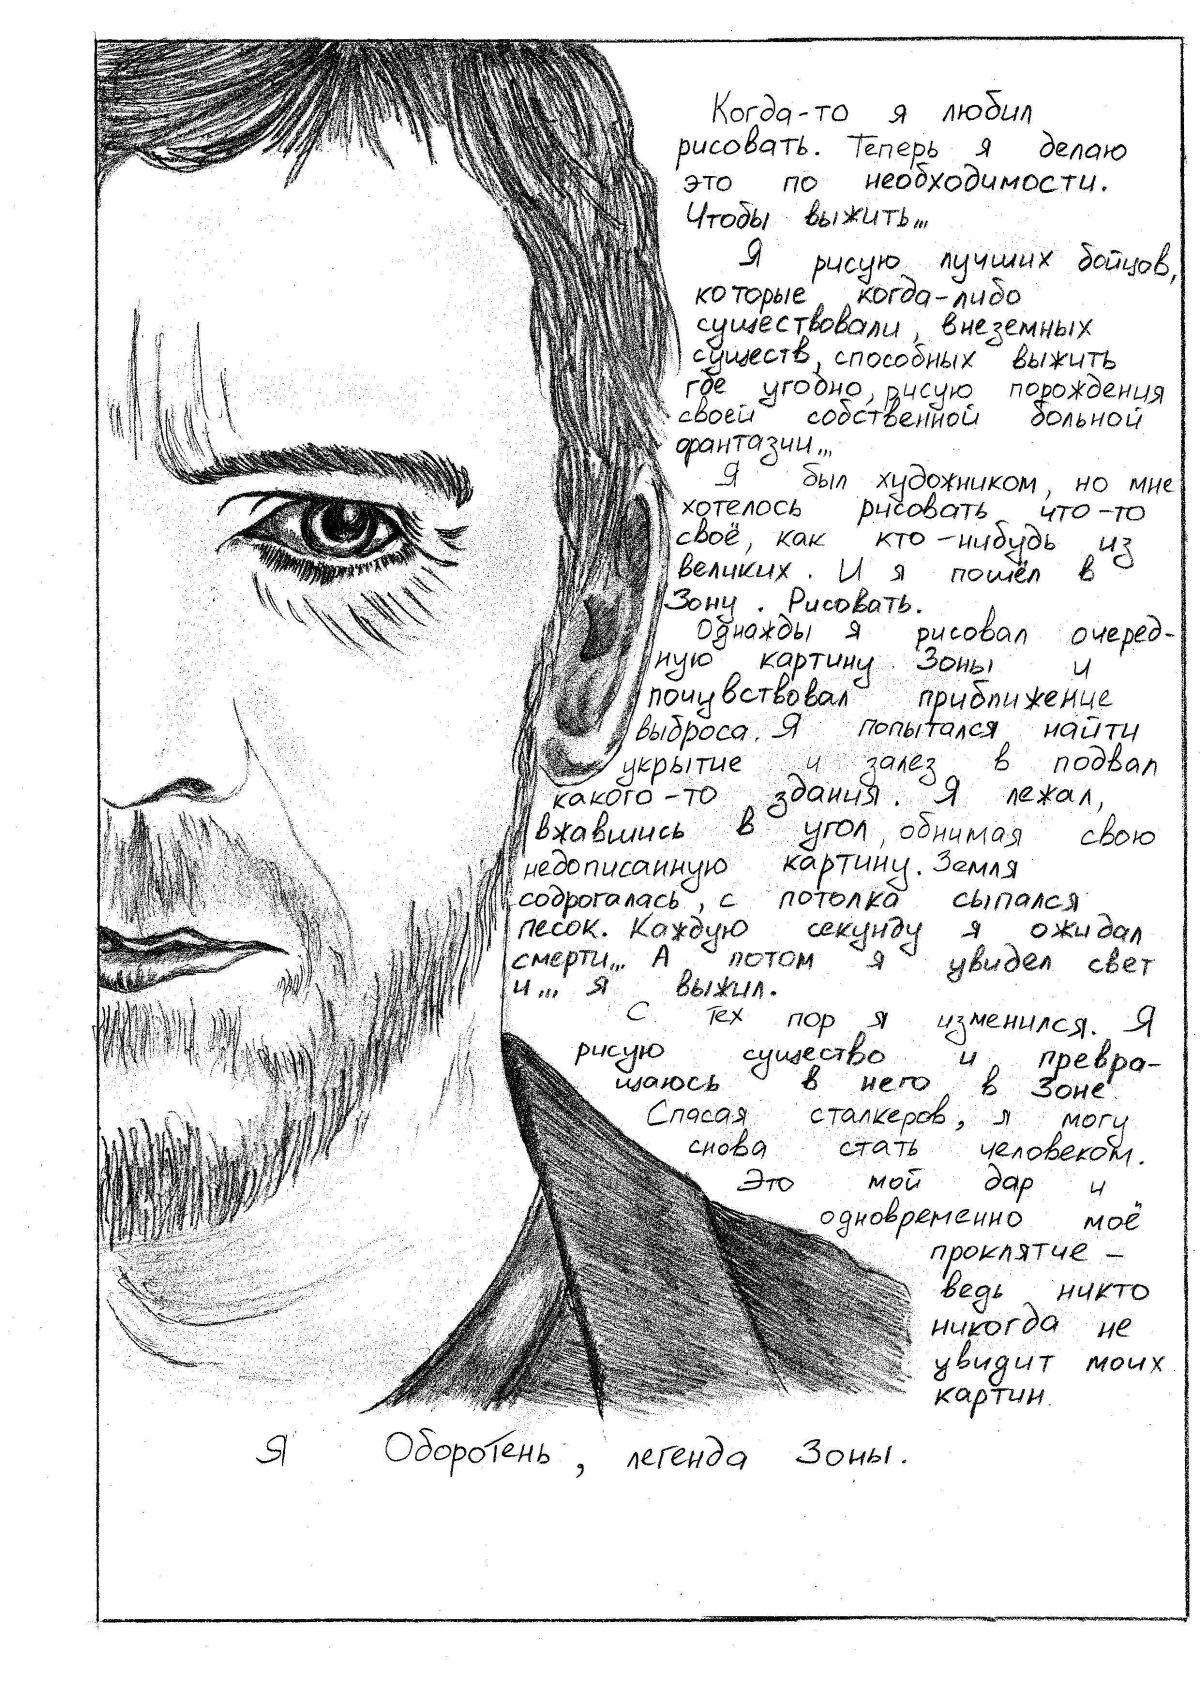 Когда-то я любил
рисовать. Теперь я делаю
это по необходимости.
Чтобы выжить...
Я рисую лучших бойцов,
которые когда-либо
существовали, внеземных
существ, способных выжить
где угодно, рисую порождения
своей собственной больной
фантазии...
Я был художником, но мне
хотелось рисовать что-то
своё, как кто-нибудь из
великих. И я пошёл в
Зону. Рисовать.
Однажды я рисовал очеред-
ную картину Зоны и
почувствовал приближение
выброса. Я попытался найти
укрытие и залез в подвал
какого-то здания. Я лежал,
вжавшись в угол, обнимая свою
недописанную картину. Земля
содрогалась, с потолка сыпался
песок. Каждую секунду я ожидал
смерти... А потом я увидел свет
и... я выжил.
С тех пор я изменился. Я
рисую существо и превра-
щаюсь в него в Зоне.
Спасая сталкеров, я могу
снова стать человеком.
Это мой дар и
одновременно моё
проклятие –
ведь никто
никогда не
увидит моих
картин.
Я Оборотень, легенда Зоны.